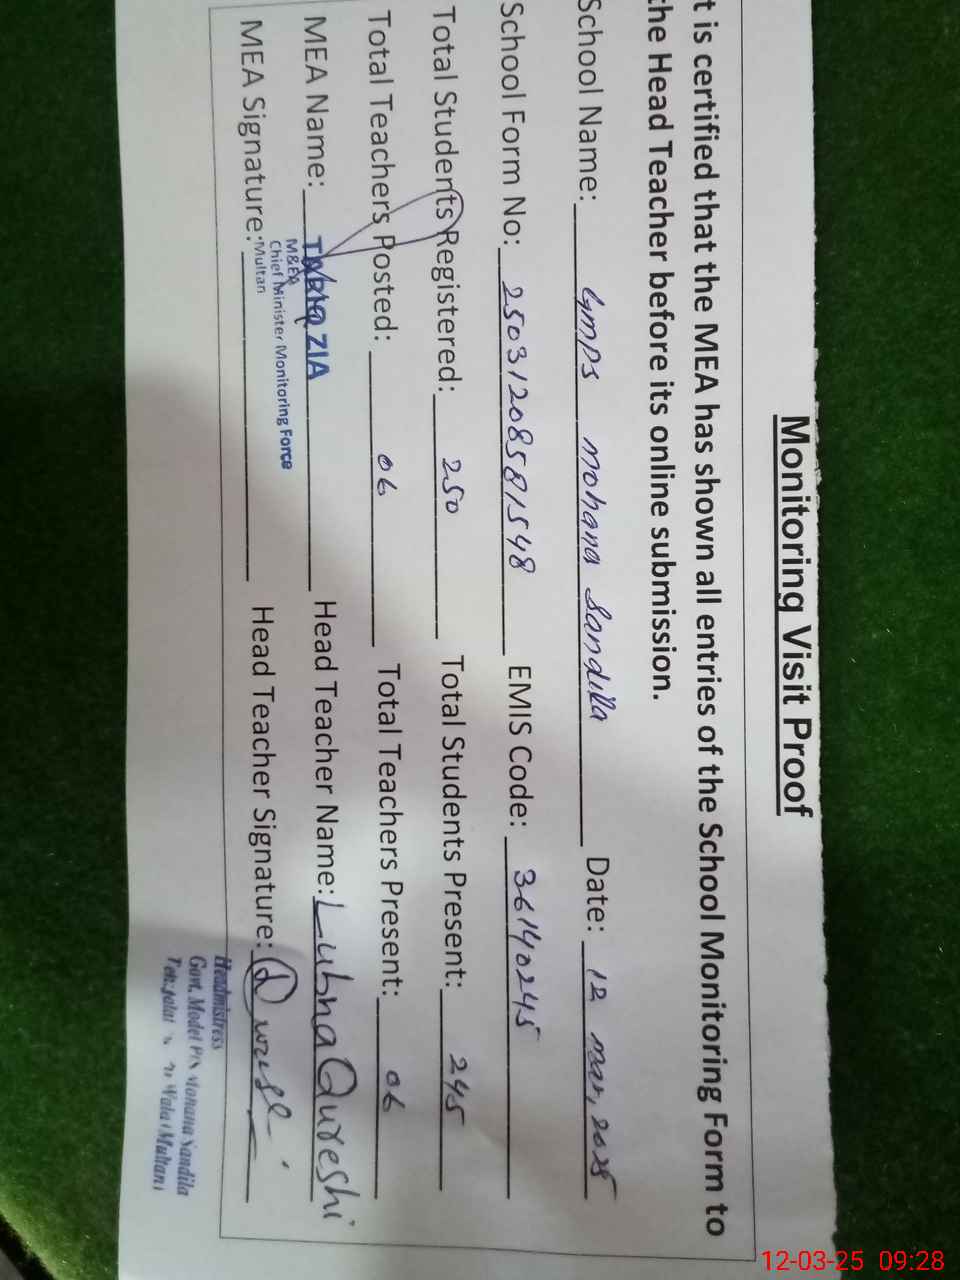 Monitoring Visit Proof
t is certified that the MEA has shown all entries of the School Monitoring Form to
the Head Teacher before its online submission.
School Name: GMPS Mohana Sandilla Date: 12 Mar, 2025
School Form No: 250312085815 48 EMIS Code: 36140245
Total Students Registered: 250 Total Students Present: 245
Total Teachers Posted: 06 Total Teachers Present: 06
MEA Name: TARIQ ZIA Head Teacher Name: Lubna Qureshi
M&EA
Chief Minister Monitoring Force
Multan
MEA Signature: Head Teacher Signature:
Headmistress
Govt. Model P/S Mohana Sandila
Wala (Multan)
12-03-25 09:28